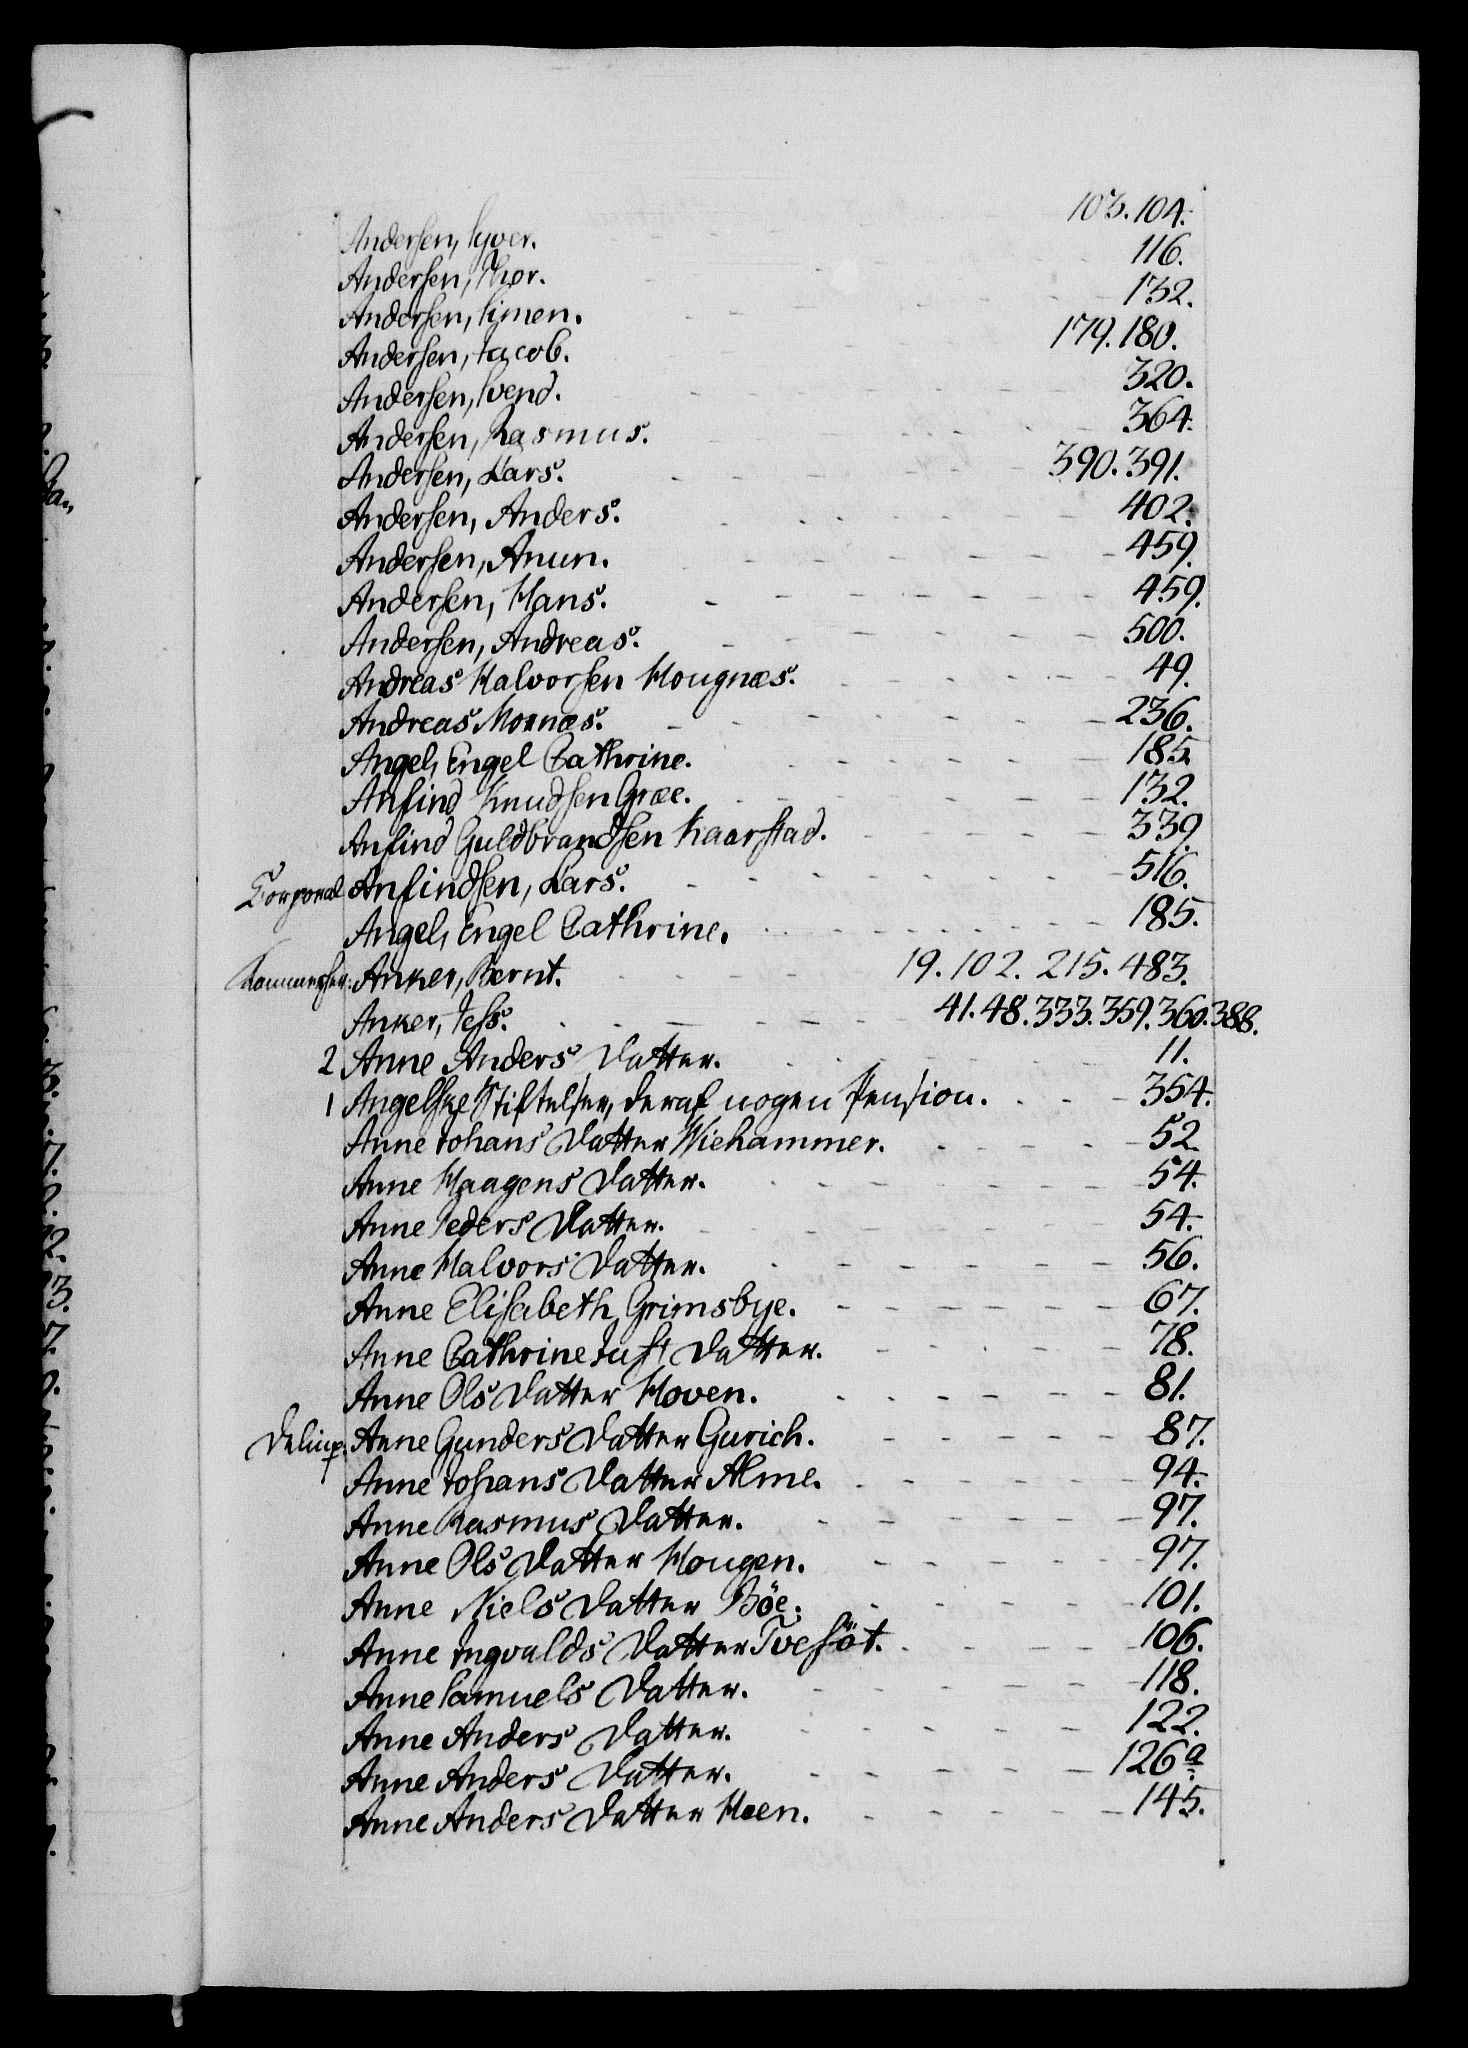 Andersen, Syver. 103. 104.
Andersen, Thor. 116.
Andersen, Simen. 132.
Andersen, Jacob. 179. 180.
Andersen, Svend. 320.
Andersen, Rasmus. 364.
Andersen, Lars. 390. 391.
Andersen, Anders. 402.
Andersen, Anun. 459.
Andersen, Hans. 459.
Andersen, Andreas. 500.
Andreas Halvorsen Hougnæs. 49.
Andreas Mornæs. 236.
Angel, Engel Cathrine. 185
Anfind Knudsen Græe. 132.
Anfind Guldbrandsen Kaarstad. 339
Corporal Anfindsen, Lars. 516.
Angel, Engel Cathrine. 185.
Kammerher: Anker, Bernt. 19. 102. 215. 483.
Anker, Jess. 41. 48. 333. 359. 360. 388.
2 Anne Anders Datter. 11.
1 Angelske Stiftelser, deraf nogen Pension. 354.
Anne Johans Datter Wiehammer. 52
Anne Haagens Datter. 54.
Anne Peders Datter. 54.
Anne Halvors Datter. 56.
Anne Elisabeth Grimsbye. 67.
Anne Cathrine Just Datter. 78.
Anne Ols Datter Hoven. 81.
Delinq: Anne Gunders Datter Gurich. 87.
Anne Johans Datter Alme. 94.
Anne Rasmus Datter. 97.
Anne Ols Datter Hougen. 97.
Anne Niels Datter Böe. 101.
Anne Ingvalds Datter Tvesöt. 106.
Anne Samuels Datter. 118.
Anne Anders Datter. 122.
Anne Anders Datter. 126a
Anne Anders Datter Hoen. 145.